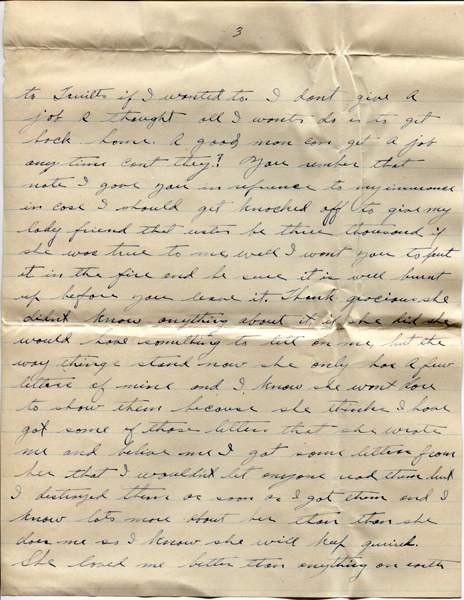 3
to Truitts if I wanted to. I dont give a
job a thought all I wants do is to get
back home. A good man can get a job
any time cant they? You rember that
note I gave you in refrence to my insurance
in case I should get knocked off to give my
lady friend that uster be three thousand if
she was true to me, well I want you to put
it in the fire and be sure it is well burnt
up before you leave it. Thank gracious she
didnt know anything about it if she did she
would have something to tell on me, but the
way things stand now she only has a few
letters of mine and I know she wont dare
to show them because she thinks I have
got some of those letters that she wrote
me and belive me I got some letters from
her that I wouldnt let anyone read them but
I destroyed them as soon as I got them and I
know lots more about her than than she
does me so I know she will keep quiet.
She loved me better than anything on earth